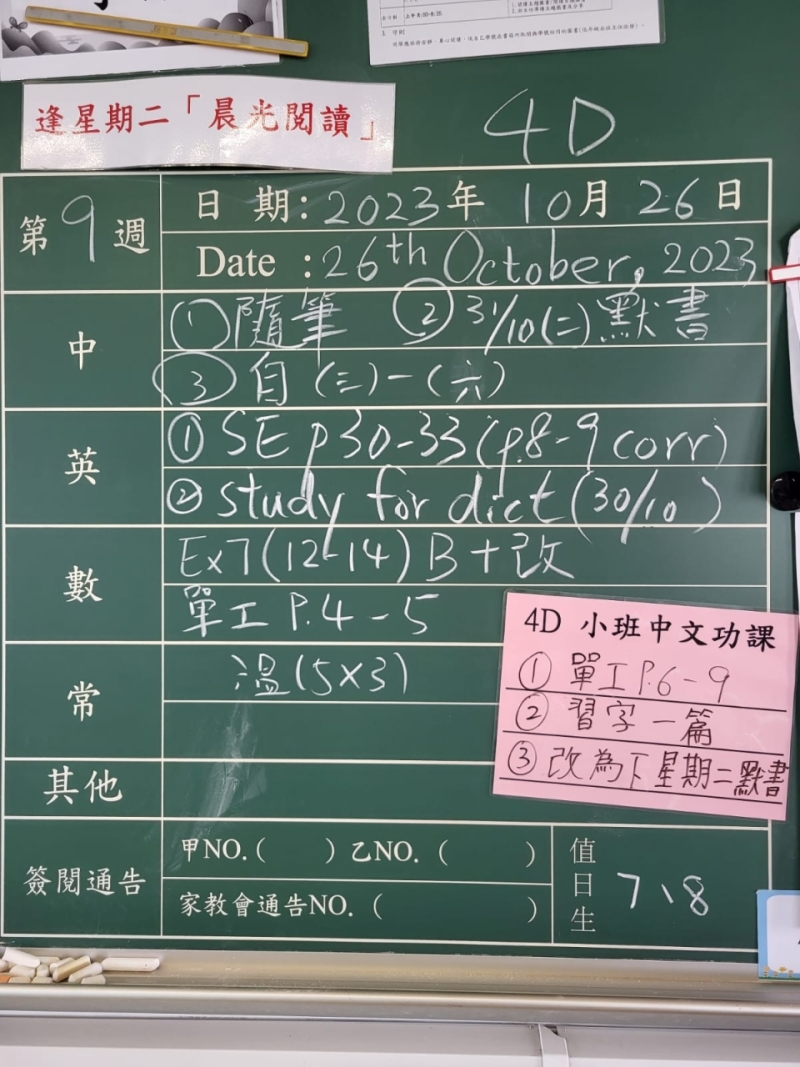 逢星期二「晨光閱讀」
4D
第9週
日 期：2023年 10月 26日
Date : 26th October, 2023
中
①隨筆 ② 31/10(二)默書
③ 自 (三)－(六)
英
① SE p30-33 (p.8-9 corr)
② study for dict (30/10)
數
Ex7 (12-14) B + 改
單工 P.4-5
4D 小班中文功課
① 單工 P.6-9
② 習字一篇
③ 改為下星期二默書
常
溫(5x3)
其他
簽閱通告
甲NO.( ) 乙NO. ( )
家教會通告NO. ( )
值日生
7、8